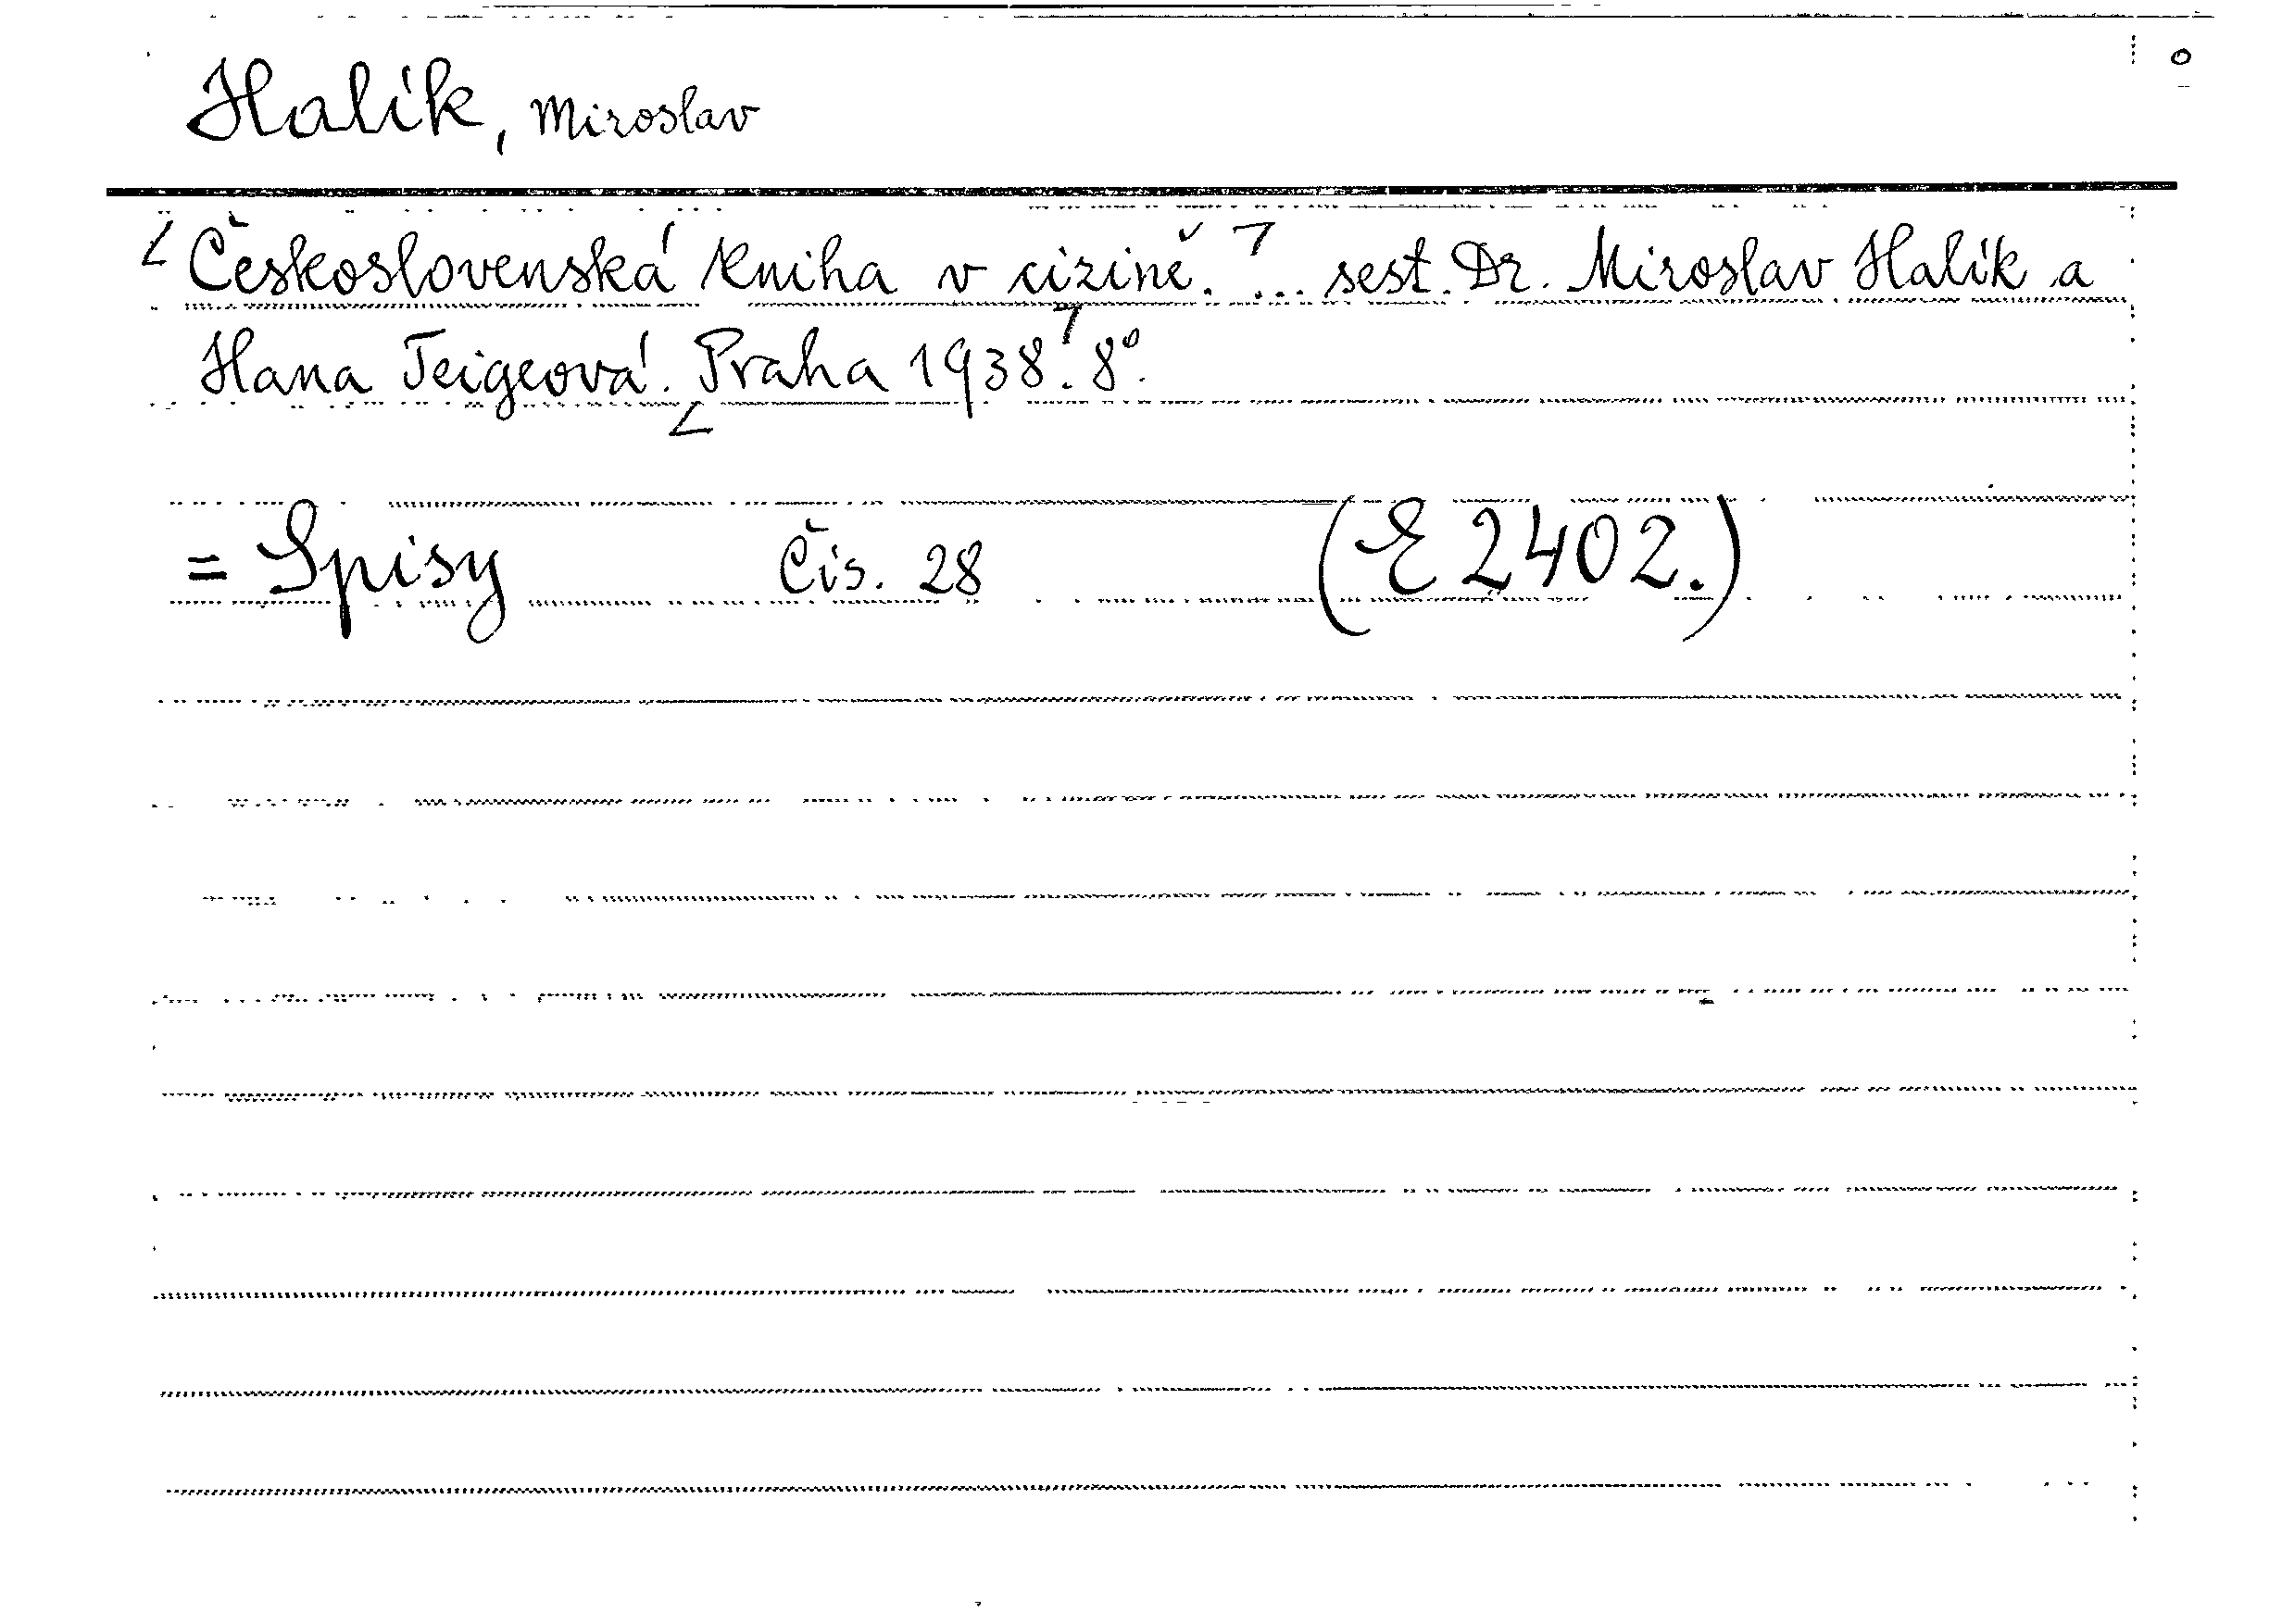 Halík, Miroslav
Československá kniha v cizině. ... sest. Dr. Miroslav Halík a
Hana Teigeová. Praha 1938. 8°.
= Spisy Čís. 28 (E 2402.)